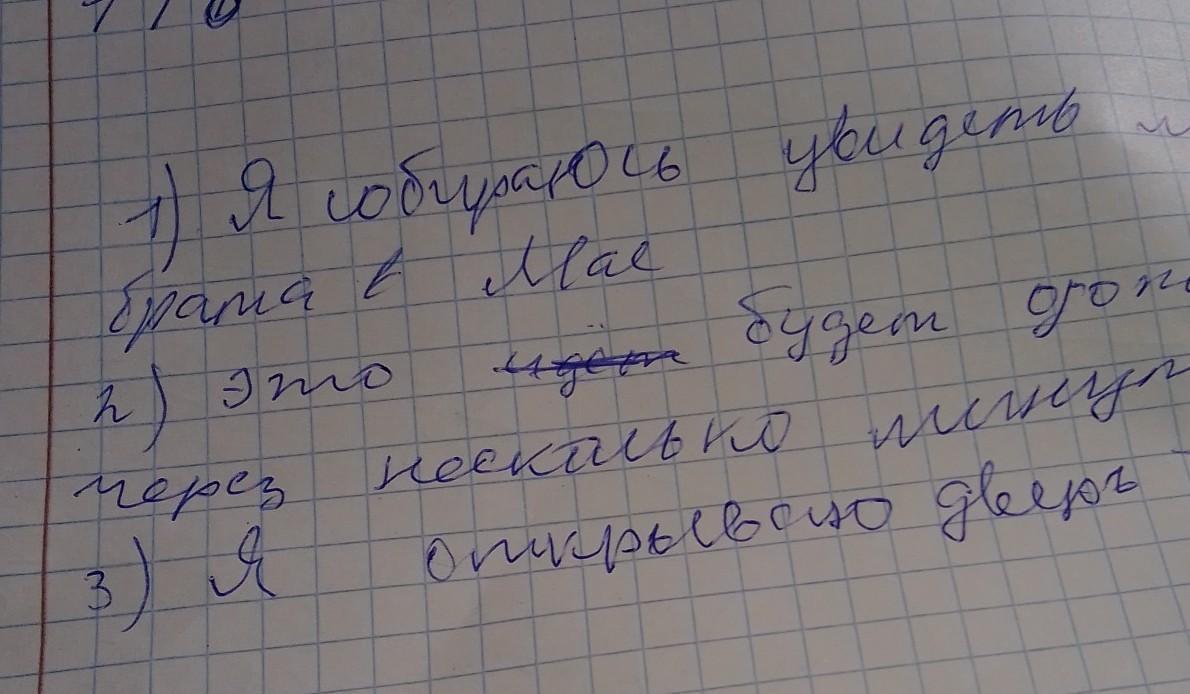 1) Я собираюсь увидеть
брата в Мае
2) это будет
через несколько минут
3) Я открываю дверь